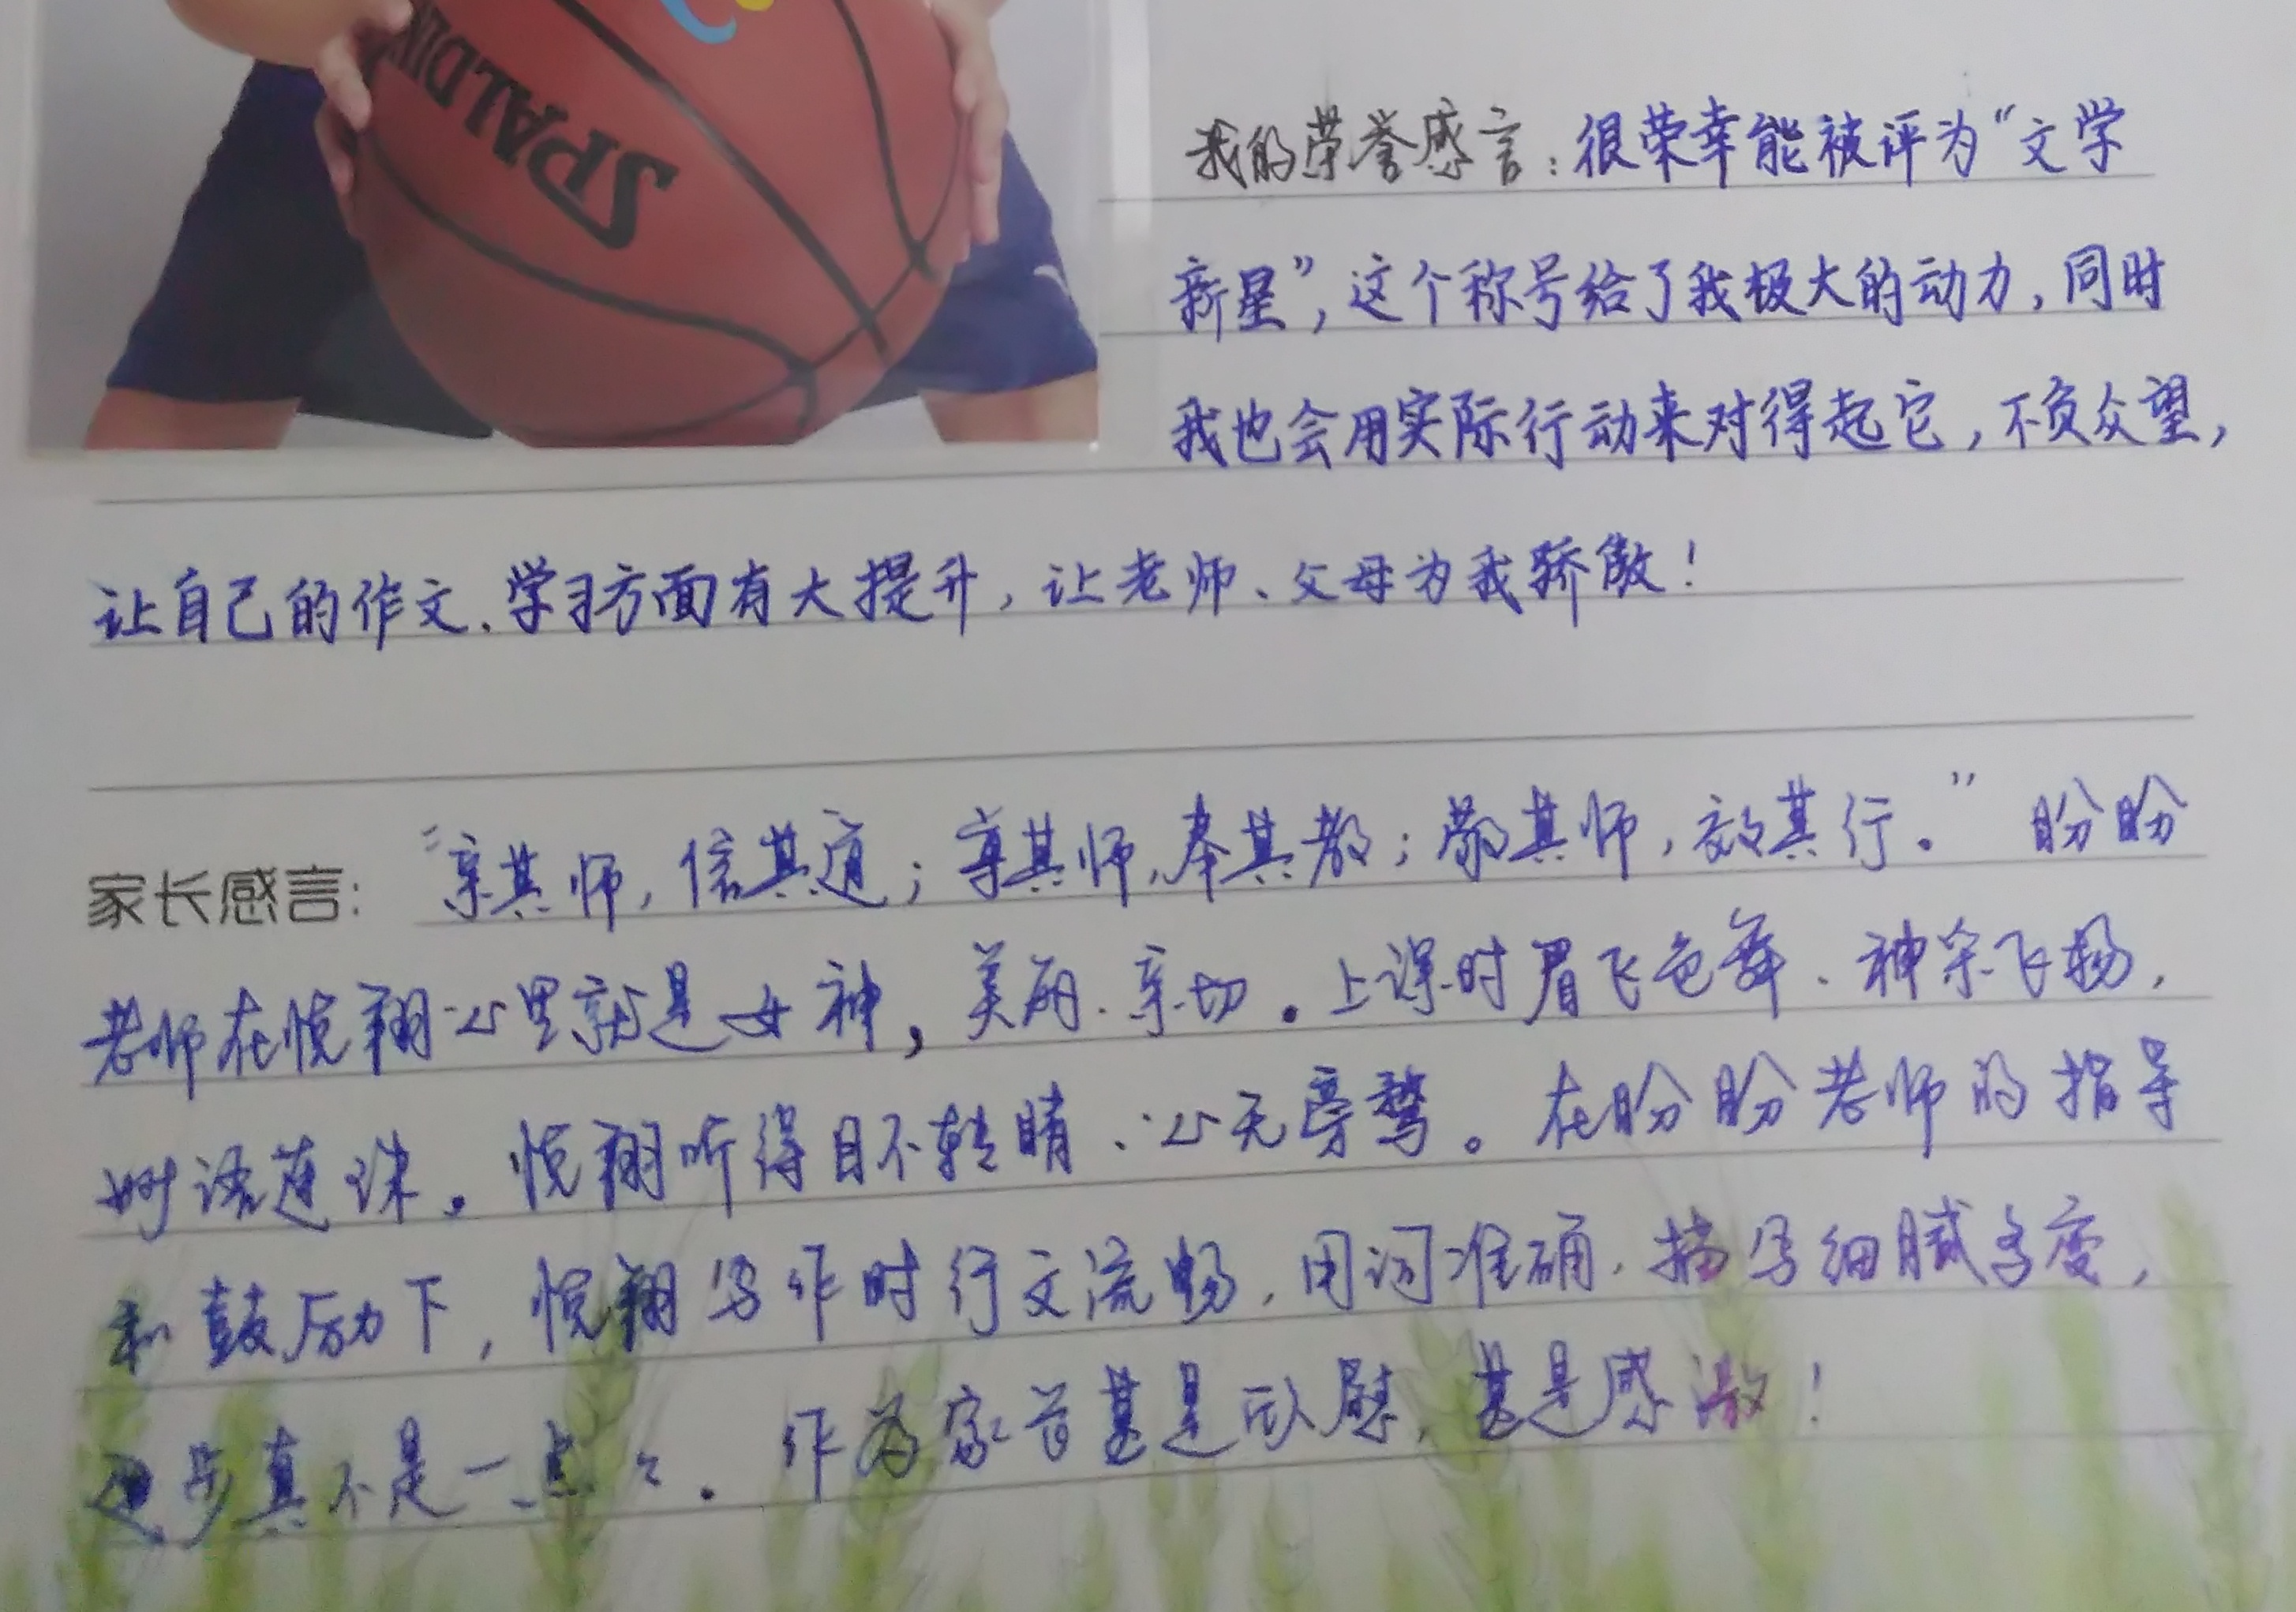 SPALDING
我的荣誉感言：很荣幸能被评为“文学
新星”，这个称号给了我极大的动力，同时
我也会用实际行动来对得起它，不负众望，
让自己的作文、学习方面有大提升，让老师、父母为我骄傲！
家长感言：“亲其师，信其道；尊其师，奉其教；敬其师，效其行。”盼盼
老师在悦翔心里就是女神，美丽、亲切。上课时眉飞色舞、神采飞扬，
妙语连珠。悦翔听得目不转睛、心无旁骛。在盼盼老师的指导
和鼓励下，悦翔写作时行文流畅，用词准确，描写细腻多变，
进步真不是一点点。作为家长甚是欣慰，甚是感激！